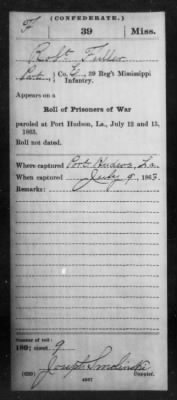 (CONFEDERATE.)
F 39 Miss.
Robt Fuller
Pvt., Co. G, 39 Reg't Mississippi
Infantry.
Appears on a
Roll of Prisoners of War
paroled at Port Hudson, La., July 12 and 13,
1863.
Roll not dated.
Where captured Port Hudson, La.
When captured July 9, 1863.
Remarks:
Number of roll:
189; sheet 9
Joseph Smolinski
(639) Copyist.
4667